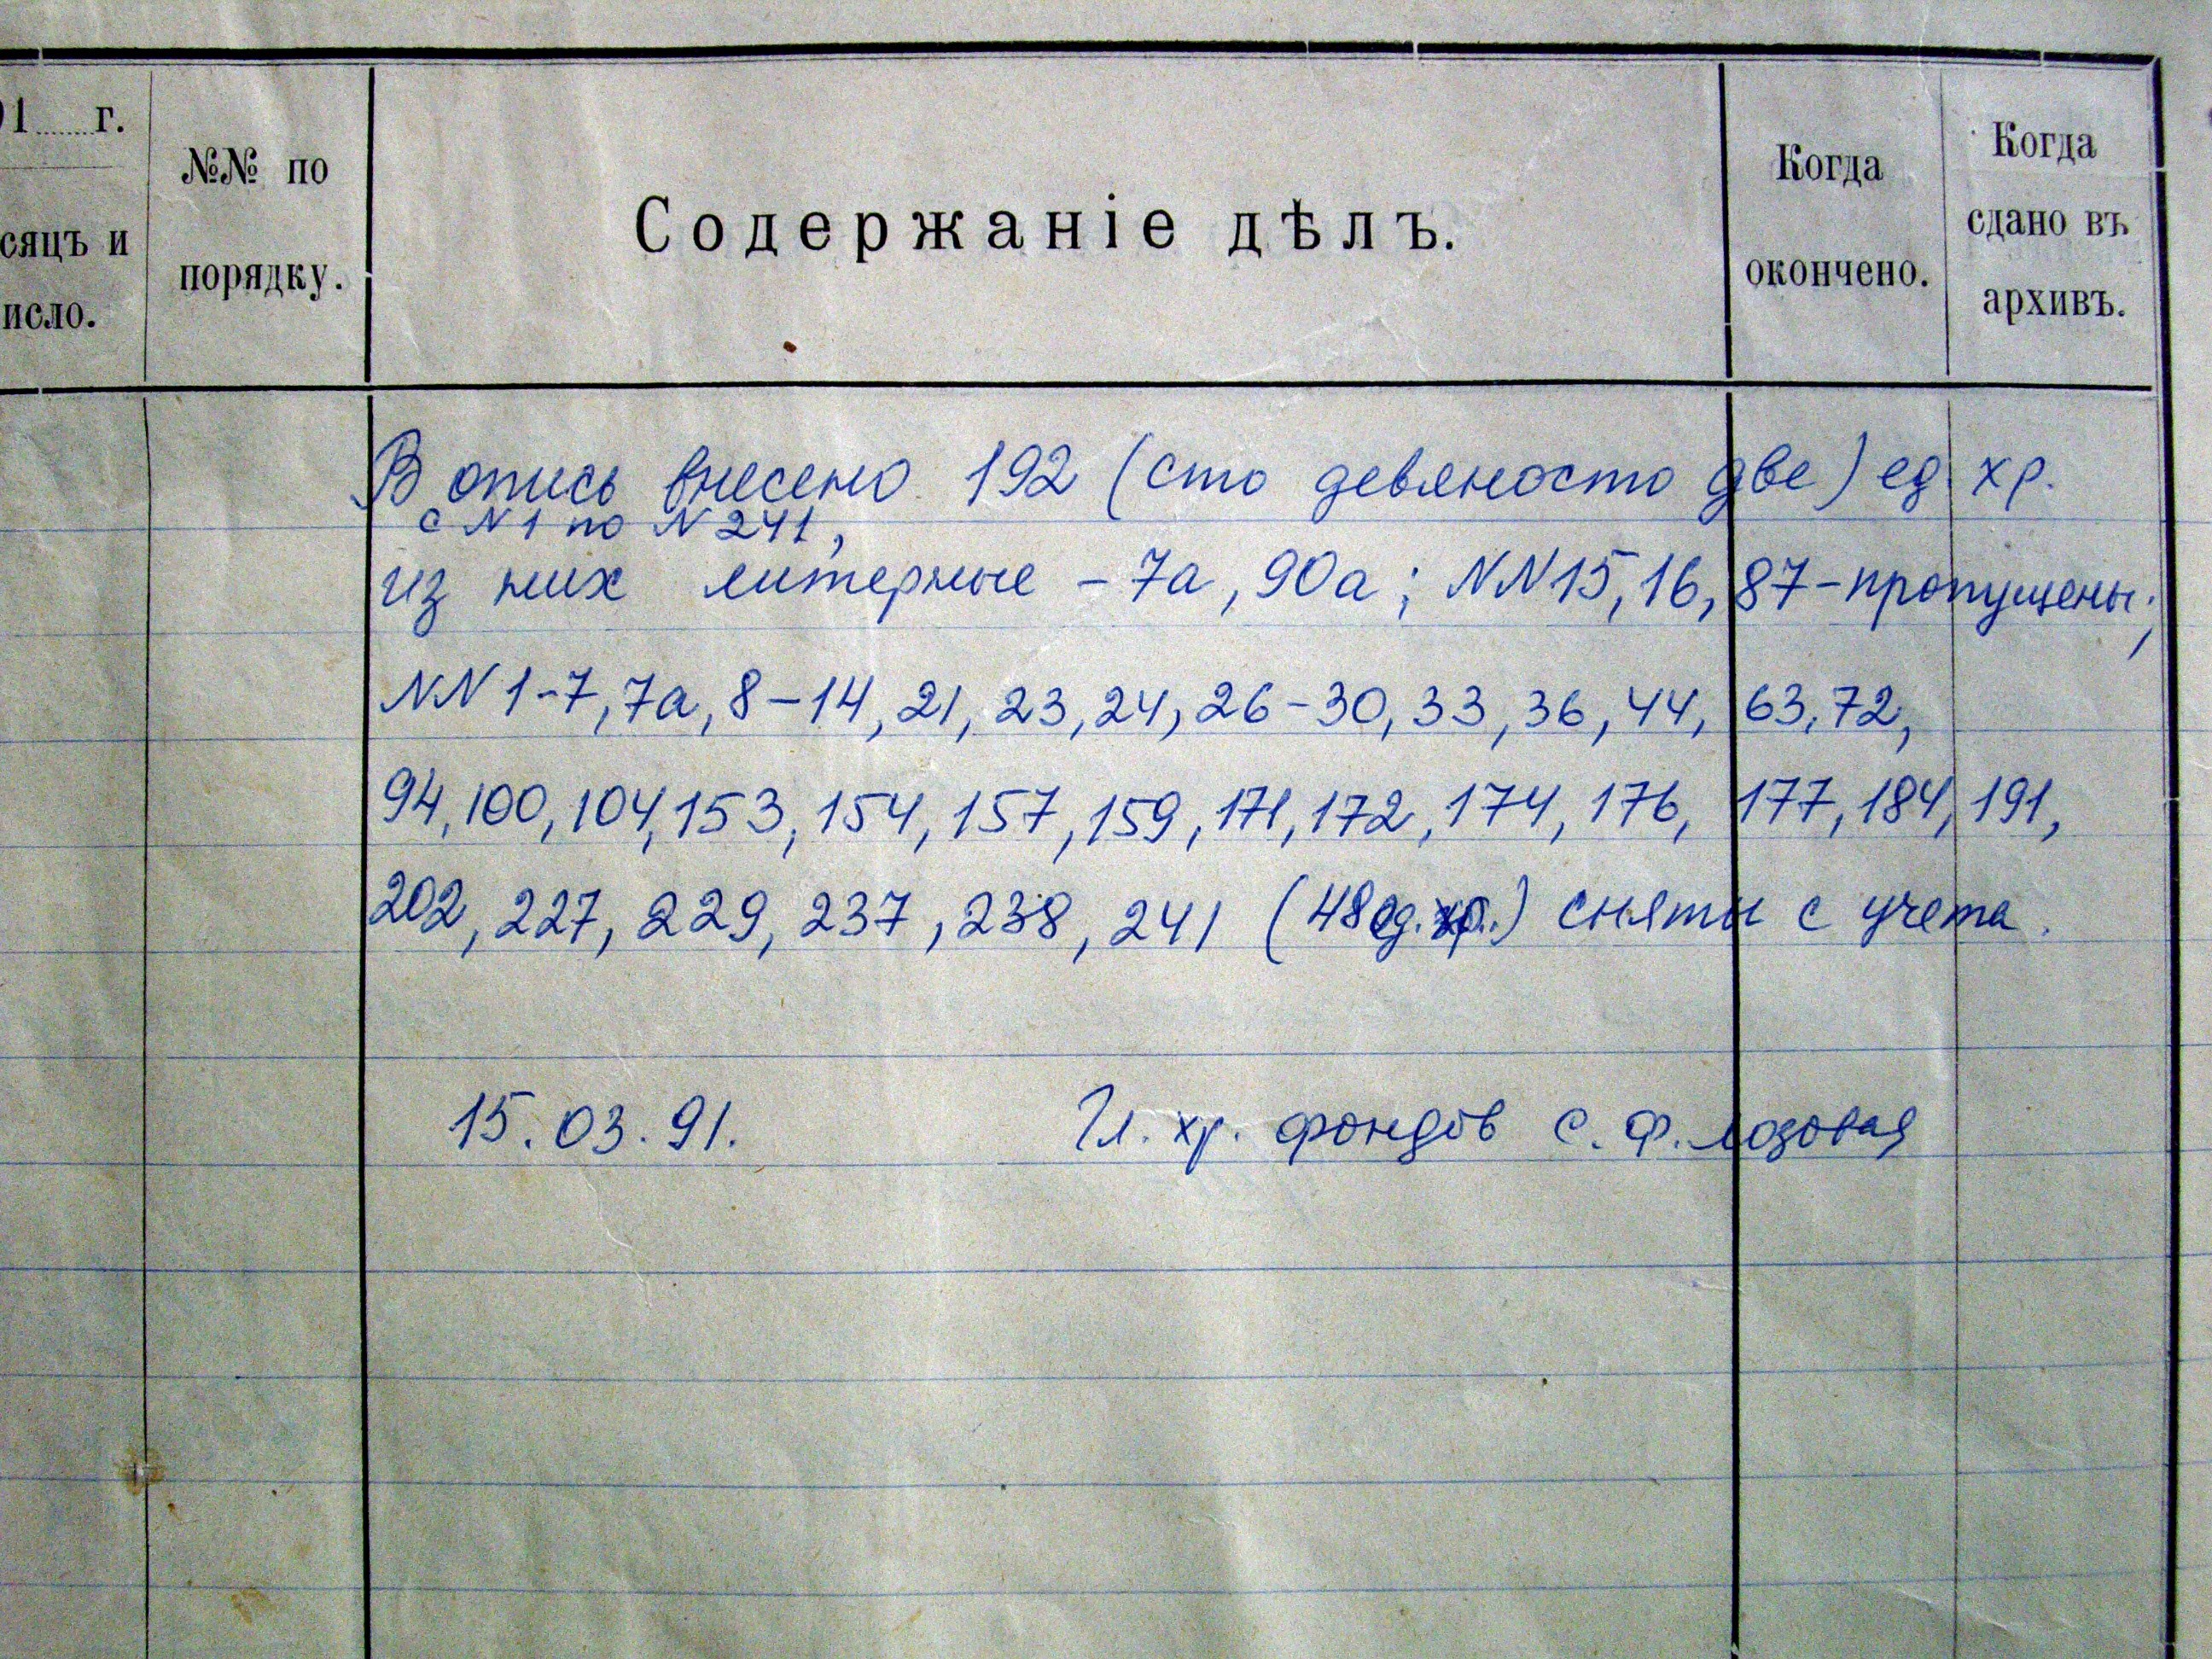 1......г.
сяцъ и
исло.
№№ по
порядку.
Содержаніе дѣлъ.
Когда
окончено.
Когда
сдано въ
архивъ.
В опись внесено 192 (сто девяносто две) ед. хр.
с N 1 по N 241,
из них литерные - 7а, 90а; NN 15, 16, 87 - пропущены;
NN 1-7, 7а, 8-14, 21, 23, 24, 26-30, 33, 36, 44, 63, 72,
94, 100, 104, 153, 154, 157, 159, 171, 172, 174, 176, 177, 184, 191,
202, 227, 229, 237, 238, 241 (48 ед. хр.) сняты с учета.
15.03.91. Гл. хр. фондов С. Ф. Лозовая